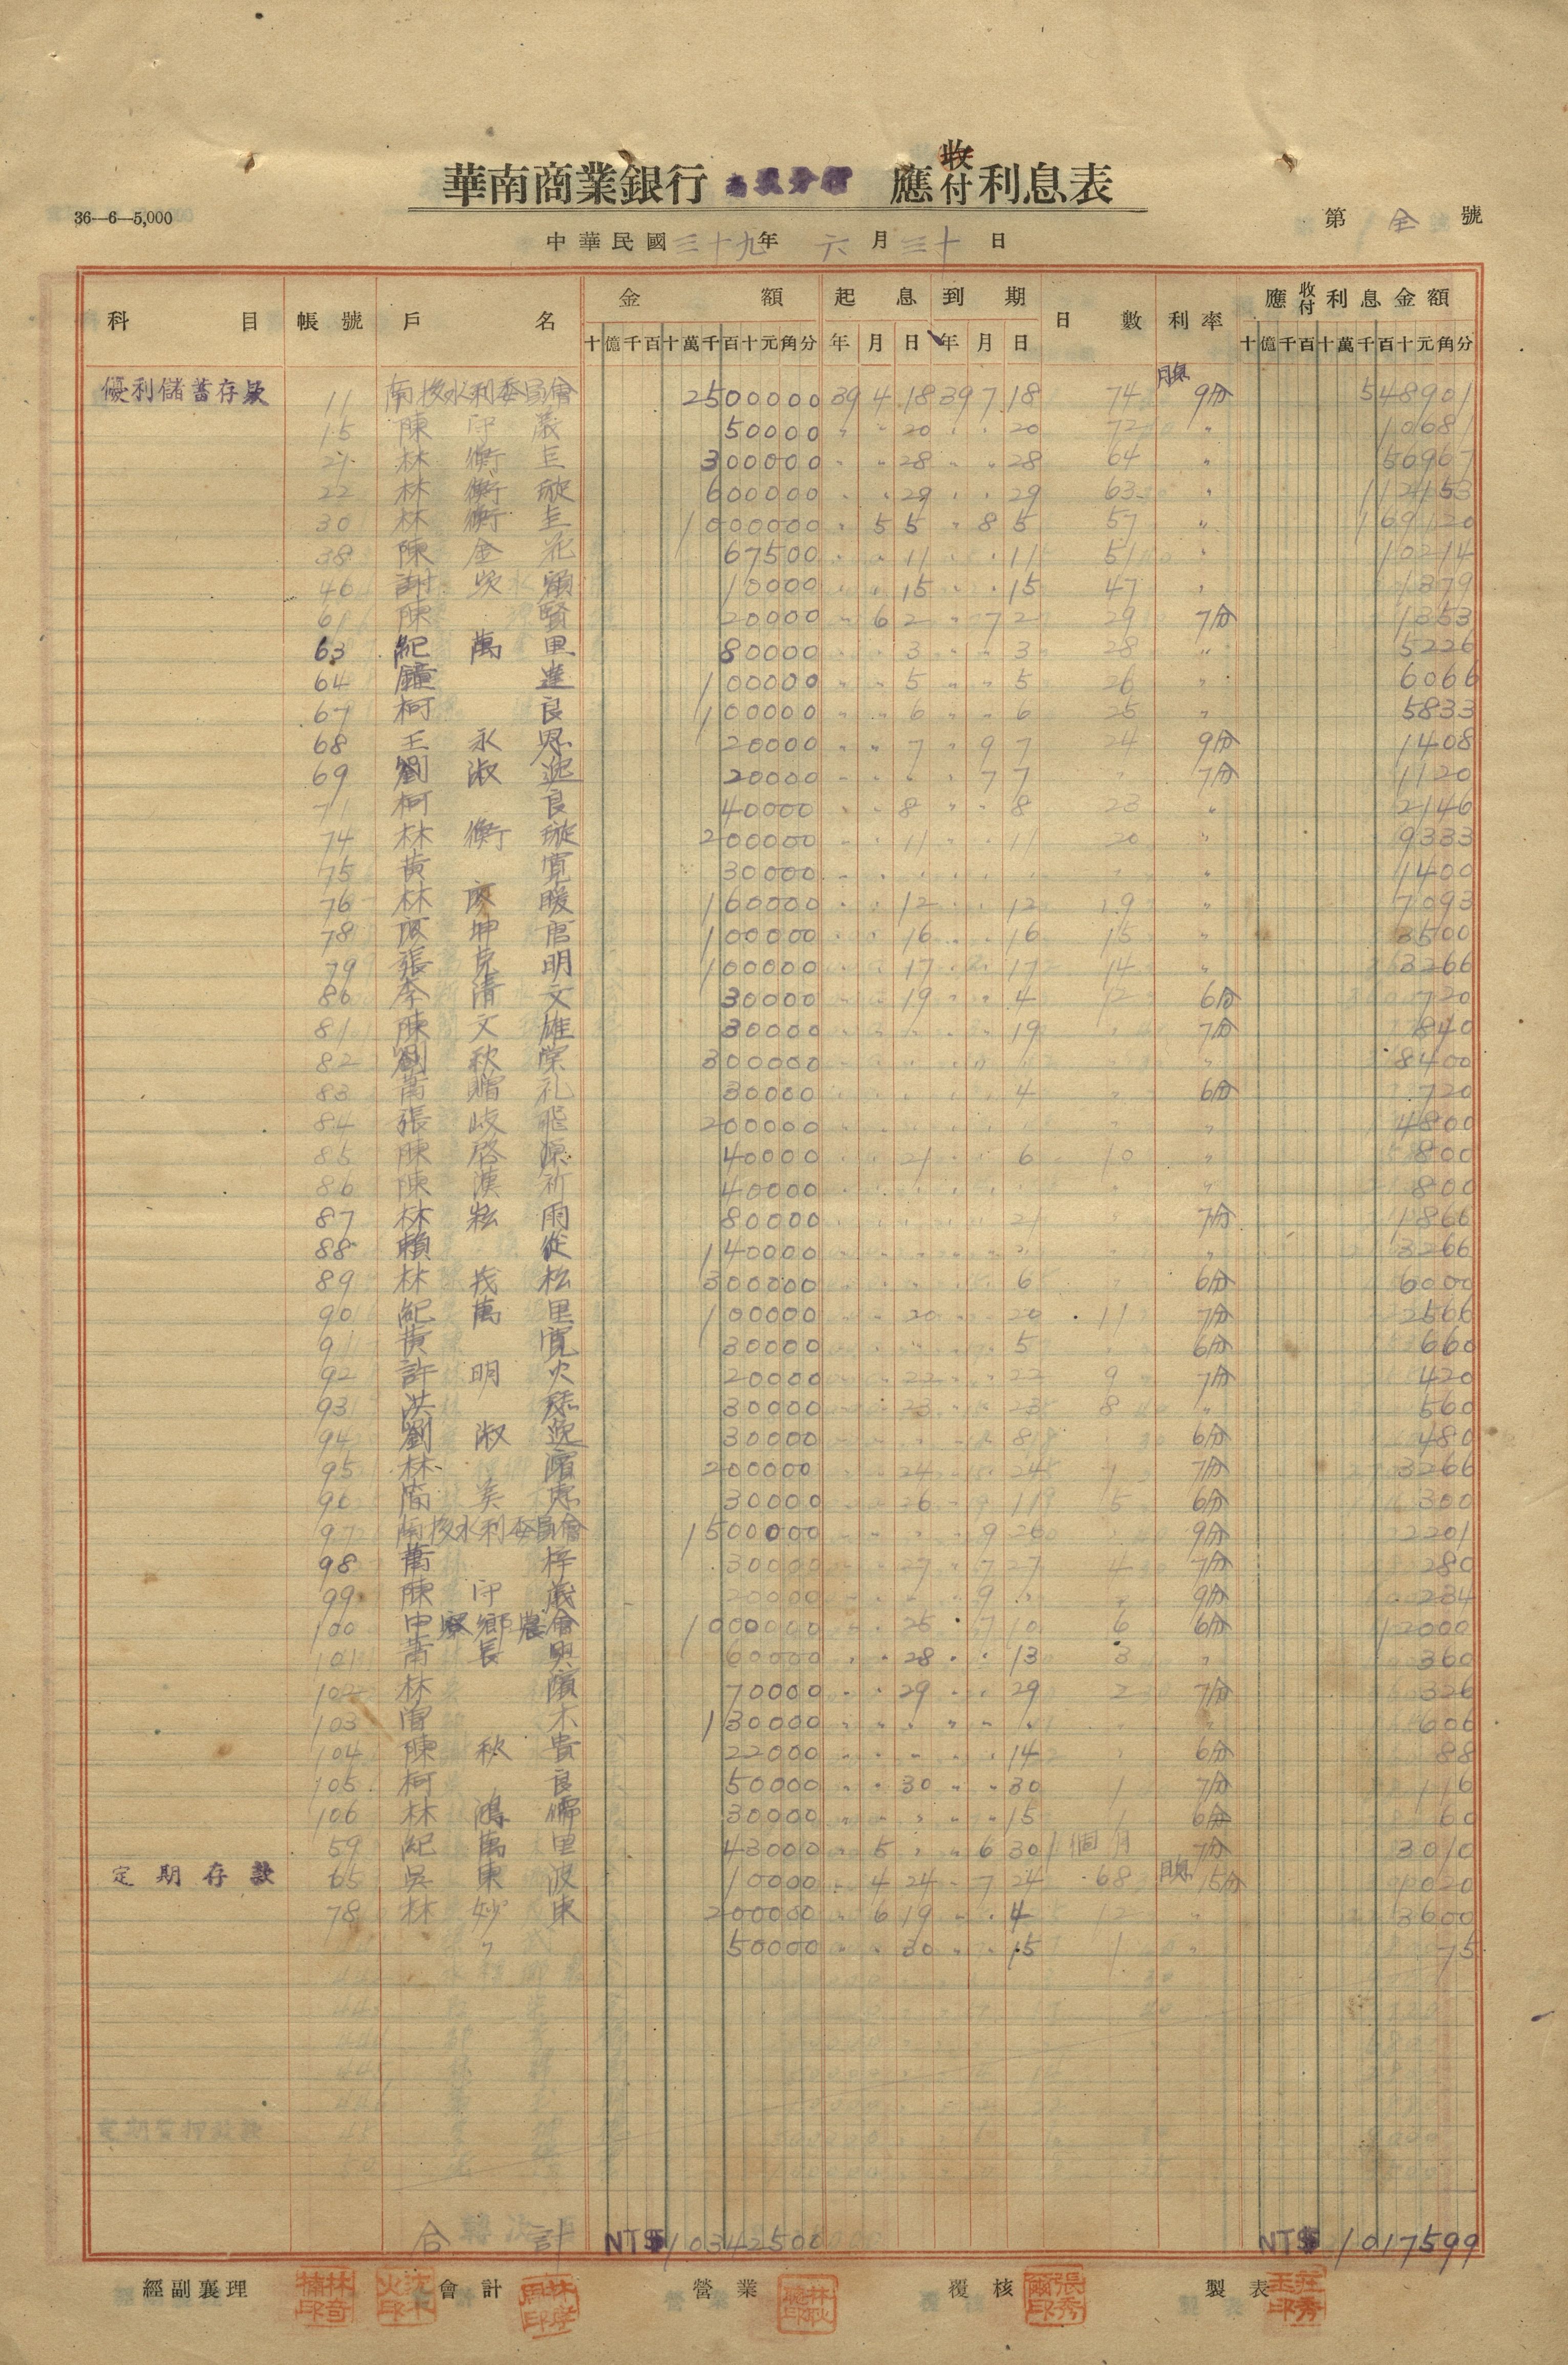 華南商業銀行 分行 應收付利息表
36—6—5,000
第 全 號
中華民國三十九年 六月三十日
科目 帳號 戶名 金額 起息 到期 日數 利率 應收付利息金額
十億千百十萬千百十元角分 年月日 年月日 十億千百十萬千百十元角分
優利儲蓄存款 11 南投水利委員會 2500000 39 4 18 39 7 18 74 月息 9分 548901
15 陳印嚴 50000 〃 〃 20 〃 〃 20 72 〃 10681
21 林衡 300000 〃 〃 28 〃 〃 28 64 〃 56967
22 林衡璇 600000 〃 〃 29 〃 〃 29 63 〃 112153
30 林衡 1000000 〃 5 5 〃 8 5 57 〃 169120
38 陳金花 67500 〃 〃 11 〃 〃 11 51 〃 10214
46 謝 10000 〃 〃 15 〃 〃 15 47 〃 1379
61 陳賢 20000 〃 6 2 〃 7 2 29 7分 1353
63 紀萬里 80000 〃 〃 3 〃 〃 3 28 〃 5226
64 鐘達 100000 〃 〃 5 〃 〃 5 26 〃 6066
67 柯良 100000 〃 〃 6 〃 〃 6 25 〃 5833
68 王永恩 20000 〃 〃 7 〃 9 7 24 9分 1408
69 劉淑 20000 〃 〃 〃 〃 7 7 〃 7分 1120
71 柯良 40000 〃 〃 8 〃 〃 8 23 〃 2146
74 林衡璇 200000 〃 〃 11 〃 〃 11 20 〃 9333
75 黃寬 30000 〃 〃 〃 〃 〃 〃 〃 〃 1400
76 林暖 160000 〃 〃 12 〃 〃 12 19 〃 7093
78 坤 100000 〃 〃 16 〃 〃 16 15 〃 3500
79 張克明 100000 〃 〃 17 〃 〃 17 14 〃 3266
80 李清文 30000 〃 〃 19 〃 〃 4 12 6分 720
81 陳文雄 30000 〃 〃 〃 〃 〃 19 〃 7分 840
82 劉秋榮 300000 〃 〃 〃 〃 〃 〃 〃 〃 8400
83 礼 30000 〃 〃 〃 〃 〃 4 〃 6分 720
84 張岐 200000 〃 〃 〃 〃 〃 〃 〃 〃 4800
85 陳啓源 40000 〃 〃 21 〃 〃 6 10 〃 800
86 陳漢祈 40000 〃 〃 〃 〃 〃 〃 〃 〃 800
87 林雨 80000 〃 〃 〃 〃 〃 21 〃 7分 1866
88 賴從 140000 〃 〃 〃 〃 〃 〃 〃 〃 3266
89 林茂松 300000 〃 〃 〃 〃 〃 6 〃 6分 6000
90 紀萬里 100000 〃 〃 20 〃 〃 20 11 7分 2566
91 黃寬 30000 〃 〃 〃 〃 〃 5 〃 6分 660
92 許明火 20000 〃 〃 22 〃 〃 22 9 7分 420
93 洪 30000 〃 〃 23 〃 〃 23 8 〃 560
94 劉淑 30000 〃 〃 〃 〃 〃 8 〃 6分 480
95 林濱 200000 〃 〃 24 〃 〃 24 7分 3266
96 30000 〃 〃 26 〃 〃 11 5 6分 300
97 南投水利委員會 1500000 〃 〃 〃 〃 9 26 〃 9分 22201
98 梓 30000 〃 〃 27 〃 7 27 4 7分 280
99 陳印 20000 〃 〃 〃 〃 9 〃 〃 9分 234
100 中寮鄉農會 1000000 〃 〃 25 〃 7 10 6 6分 12000
101 長興 60000 〃 〃 28 〃 〃 13 3 〃 360
102 林濱 70000 〃 〃 29 〃 〃 29 2 7分 326
103 曾木 130000 〃 〃 〃 〃 〃 〃 〃 〃 606
104 陳秋貴 22000 〃 〃 〃 〃 〃 14 〃 6分 88
105 柯良 50000 〃 〃 30 〃 〃 30 1 7分 116
106 林鴻儒 30000 〃 〃 〃 〃 〃 15 1 6分 60
59 紀萬里 43000 〃 5 〃 〃 6 30 1個月 7分 3010
定期存款 65 吳東波 10000 〃 4 24 〃 7 24 68 月息 15分 1020
78 林妙東 200000 〃 6 19 〃 〃 4 12 〃 3600
〃 50000 〃 〃 30 〃 〃 15 1 〃 75
合計 NT$10342500 NT$1017599
經副襄理 會計 營業 覆核 製表